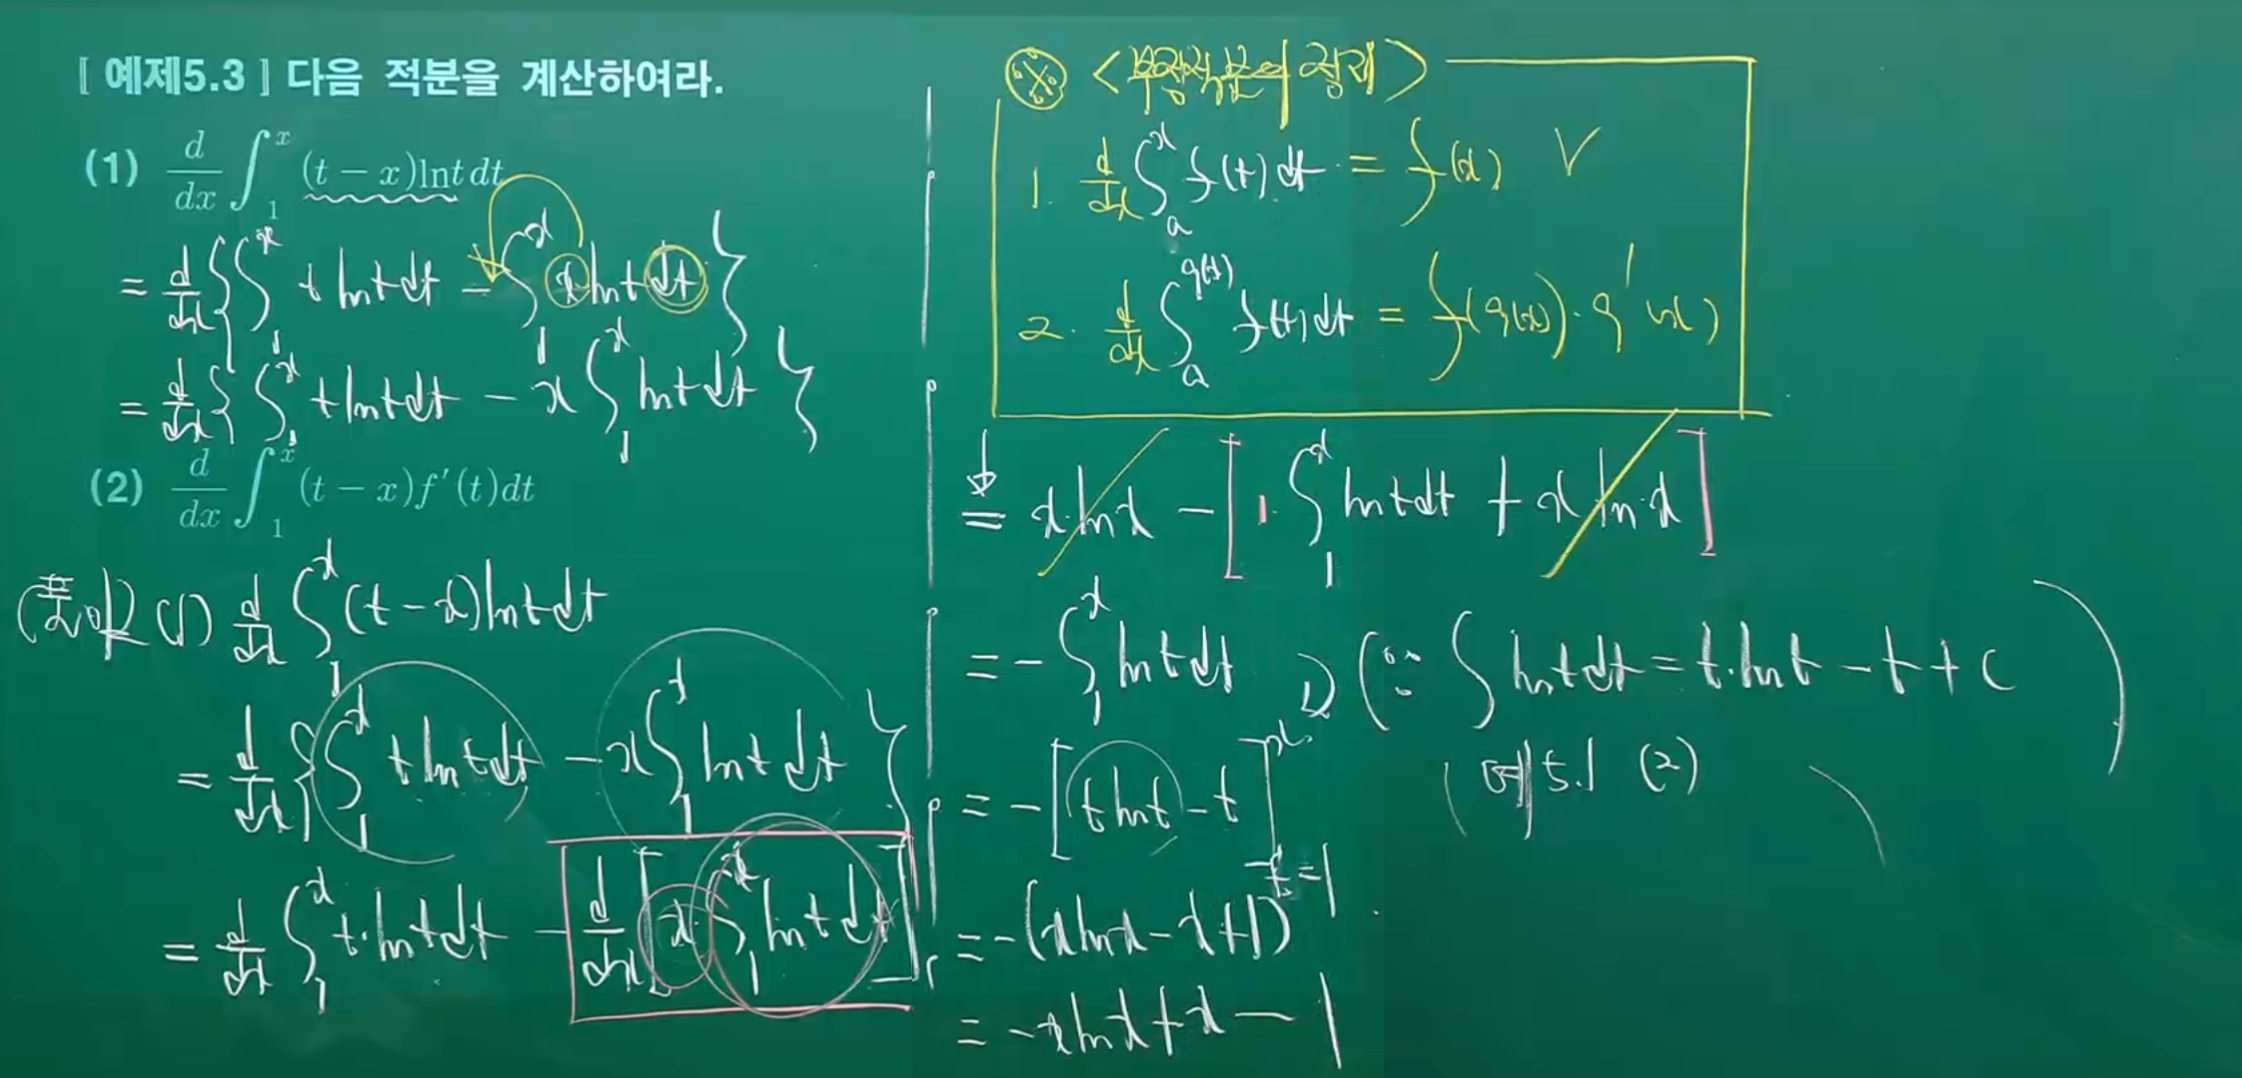 [ 예제5.3 ] 다음 적분을 계산하여라.
(1) d/dx ∫_1^x (t − x)lnt dt
= d/dx { ∫_1^x t lnt dt − ∫_1^x x lnt dt }
= d/dx { ∫_1^x t lnt dt − x ∫_1^x lnt dt }
(2) d/dx ∫_1^x (t − x)f′(t)dt
(풀이) (1) d/dx ∫_1^x (t − x)lnt dt
= d/dx { ∫_1^x t lnt dt − x ∫_1^x lnt dt }
= d/dx ∫_1^x t·lnt dt − d/dx [ x ∫_1^x lnt dt ]
1. d/dx ∫_a^x f(t) dt = f(x) V
2. d/dx ∫_a^{g(x)} f(t) dt = f(g(x))·g′(x)
= x·lnx − [ 1·∫_1^x lnt dt + x lnx ]
= − ∫_1^x lnt dt (∵ ∫ lnt dt = t·lnt − t + C
(예 5.1 (2)
= − [ t lnt − t ]_{t=1}^x
= −(x lnx − x + 1)
= −x lnx + x − 1